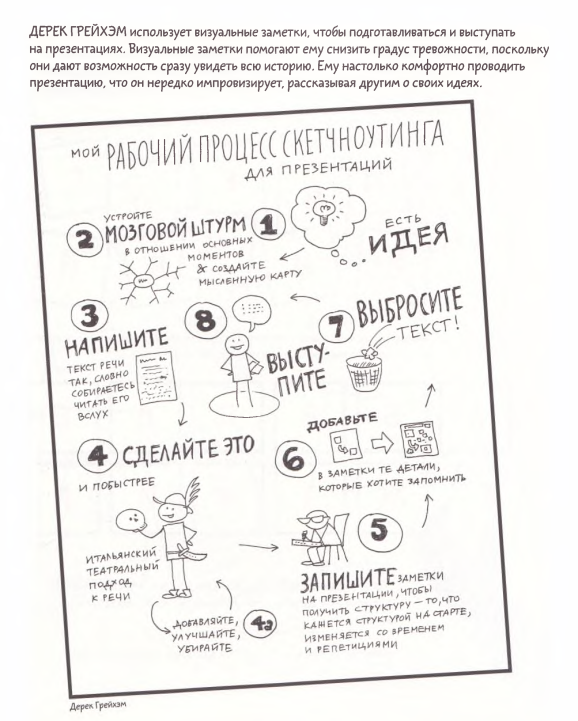 ДЕРЕК ГРЕЙХЭМ использует визуальные заметки, чтобы подготавливаться и выступать
на презентациях. Визуальные заметки помогают ему снизить градус тревожности, поскольку
они дают возможность сразу увидеть всю историю. Ему настолько комфортно проводить
презентацию, что он нередко импровизирует, рассказывая другим о своих идеях.
МОЙ РАБОЧИЙ ПРОЦЕСС СКЕТЧНОУТИНГА
ДЛЯ ПРЕЗЕНТАЦИЙ
1
ЕСТЬ
ИДЕЯ
2
УСТРОЙТЕ
МОЗГОВОЙ ШТУРМ
В ОТНОШЕНИИ ОСНОВНЫХ
МОМЕНТОВ
& СОЗДАЙТЕ
МЫСЛЕННУЮ КАРТУ
3
НАПИШИТЕ
ТЕКСТ РЕЧИ
ТАК, СЛОВНО
СОБИРАЕТЕСЬ
ЧИТАТЬ ЕГО
ВСЛУХ
4 СДЕЛАЙТЕ ЭТО
И ПОБЫСТРЕЕ
ИТАЛЬЯНСКИЙ
ТЕАТРАЛЬНЫЙ
ПОДХОД
К РЕЧИ
4а
ДОБАВЛЯЙТЕ,
УЛУЧШАЙТЕ,
УБИРАЙТЕ
5
ЗАПИШИТЕ ЗАМЕТКИ
НА ПРЕЗЕНТАЦИИ, ЧТОБЫ
ПОЛУЧИТЬ СТРУКТУРУ – ТО, ЧТО
КАЖЕТСЯ СТРУКТУРОЙ НА СТАРТЕ,
ИЗМЕНЯЕТСЯ СО ВРЕМЕНЕМ
И РЕПЕТИЦИЯМИ
6
ДОБАВЬТЕ
В ЗАМЕТКИ ТЕ ДЕТАЛИ,
КОТОРЫЕ ХОТИТЕ ЗАПОМНИТЬ
7 ВЫБРОСИТЕ
ТЕКСТ!
8
ВЫСТУ-
ПИТЕ
Дерек Грейхэм